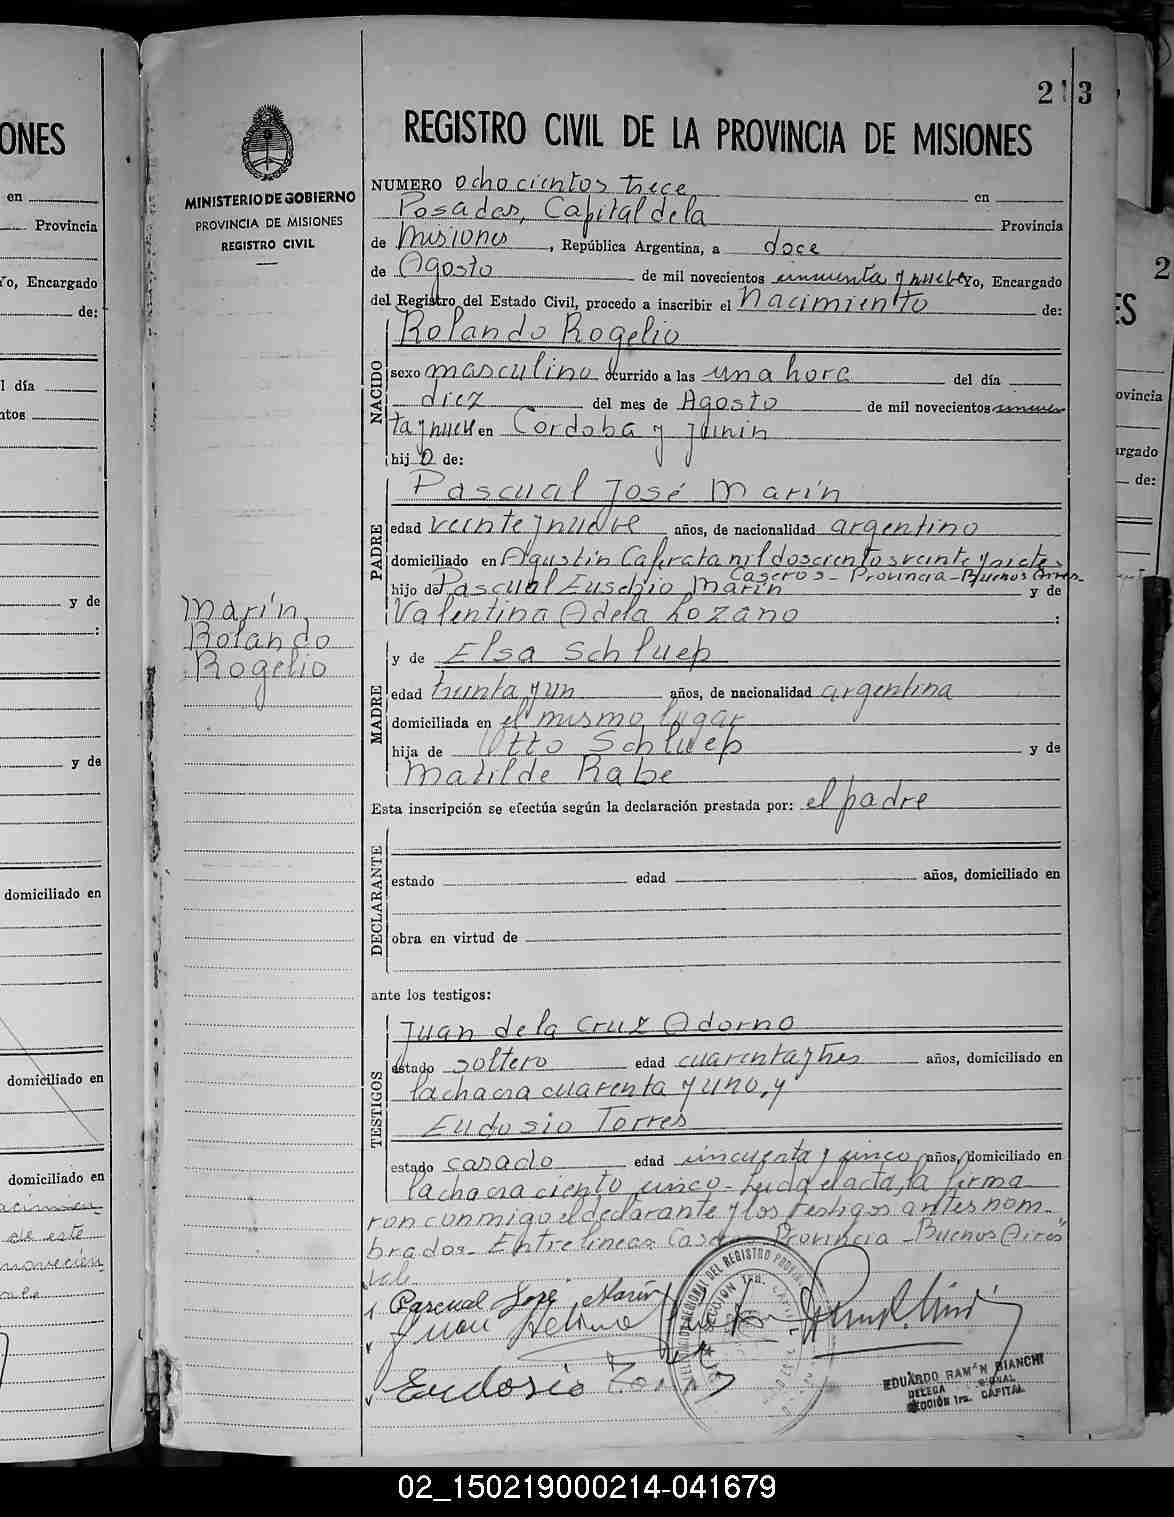 ONES
en
Provincia
Yo, Encargado
de:
l día
ntos
y de
:
y de
domiciliado en
domiciliado en
domiciliado en
de este
MINISTERIO DE GOBIERNO
PROVINCIA DE MISIONES
REGISTRO CIVIL
Marín,
Rolando
Rogelio
213
REGISTRO CIVIL DE LA PROVINCIA DE MISIONES
NUMERO ochocientos trece en
Posadas, Capital de la Provincia
de Misiones, República Argentina, a doce
de Agosto de mil novecientos cincuenta y nueve Yo, Encargado
del Registro del Estado Civil, procedo a inscribir el nacimiento de:
NACIDO
Rolando Rogelio
sexo masculino ocurrido a las una hora del día
diez del mes de Agosto de mil novecientos cincuen
ta y nueve en Cordoba y Junin
hijo de:
PADRE
Pascual José Marín
edad veinte y nueve años, de nacionalidad argentino
domiciliado en Agustín Caferata mil doscientos veinte y siete
Caseros - Provincia - Buenos Aires-
hijo de Pascual Eusebio Marín y de
Valentina Adela Lozano :
MADRE
y de Elsa Schluep
edad treinta y un años, de nacionalidad argentina
domiciliada en el mismo lugar
hija de Otto Schluep y de
Matilde Rabe
Esta inscripción se efectúa según la declaración prestada por: el padre
DECLARANTE
estado edad años, domiciliado en
obra en virtud de
ante los testigos:
TESTIGOS
Juan de la Cruz Adorno
estado soltero edad cuarenta y tres años, domiciliado en
la chacra cuarenta y uno, y
Eudosio Torres
estado casado edad cincuenta y cinco años, domiciliado en
la chacra ciento cinco - Leida el acta, la firma
ron conmigo el declarante y los testigos antes nom-
brados - Entrelineas: Caseros - Provincia - Buenos Aires"
vale
Pascual José Marín
Juan
Eudosio Torres
EDUARDO RAMON BIANCHI
SECCIÓN 1ra. CAPITAL
2
ES
ovincia
argado
de:
02_150219000214-041679